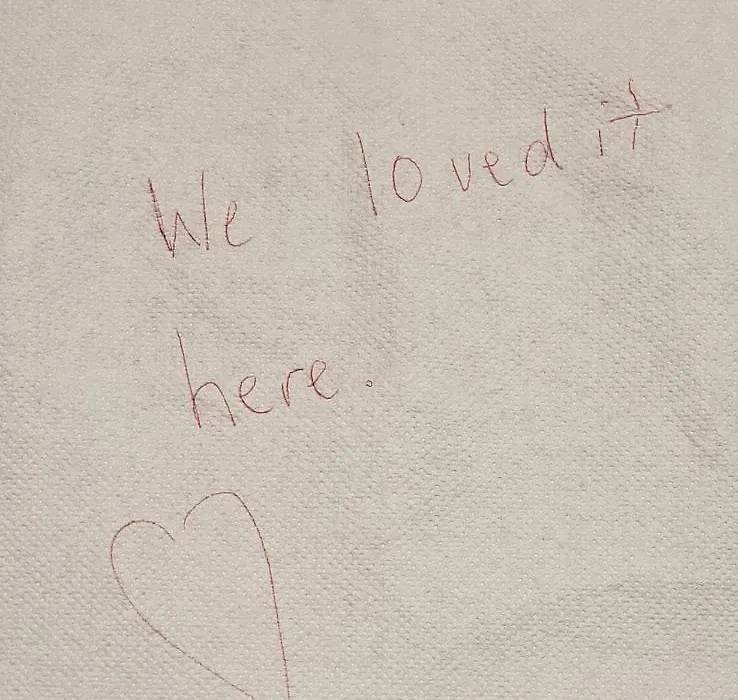 We loved it
here.